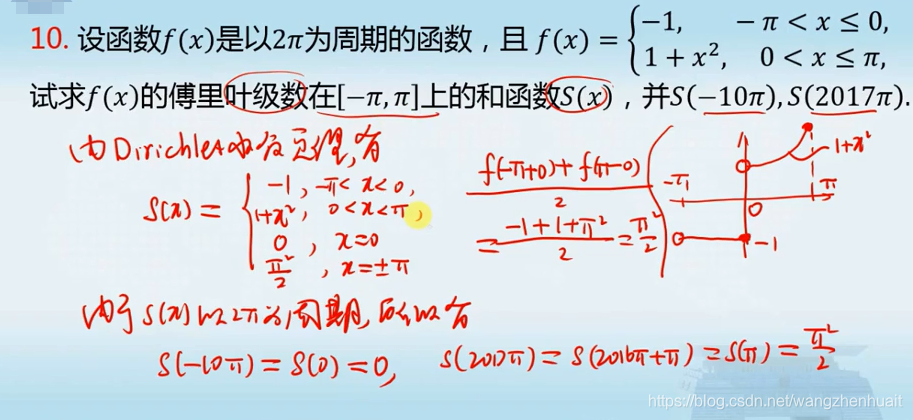 10. 设函数f(x)是以2π为周期的函数，且 f(x) = { −1, −π < x ≤ 0,
1 + x², 0 < x ≤ π,
试求f(x)的傅里叶级数在[−π,π]上的和函数S(x)，并S(−10π),S(2017π).
由Dirichlet收敛定理,有
S(x) = { −1, −π< x <0,
1+x², 0<x<π,
0, x=0
π²/2, x=±π
(f(−π+0)+f(π−0))/2
= (−1+1+π²)/2 = π²/2
1+x²
−π
0
π
−1
由于S(x)以2π为周期,所以有
S(−10π)=S(0)=0, S(2017π)=S(2016π+π)=S(π)=π²/2
https://blog.csdn.net/wangzhenhuait